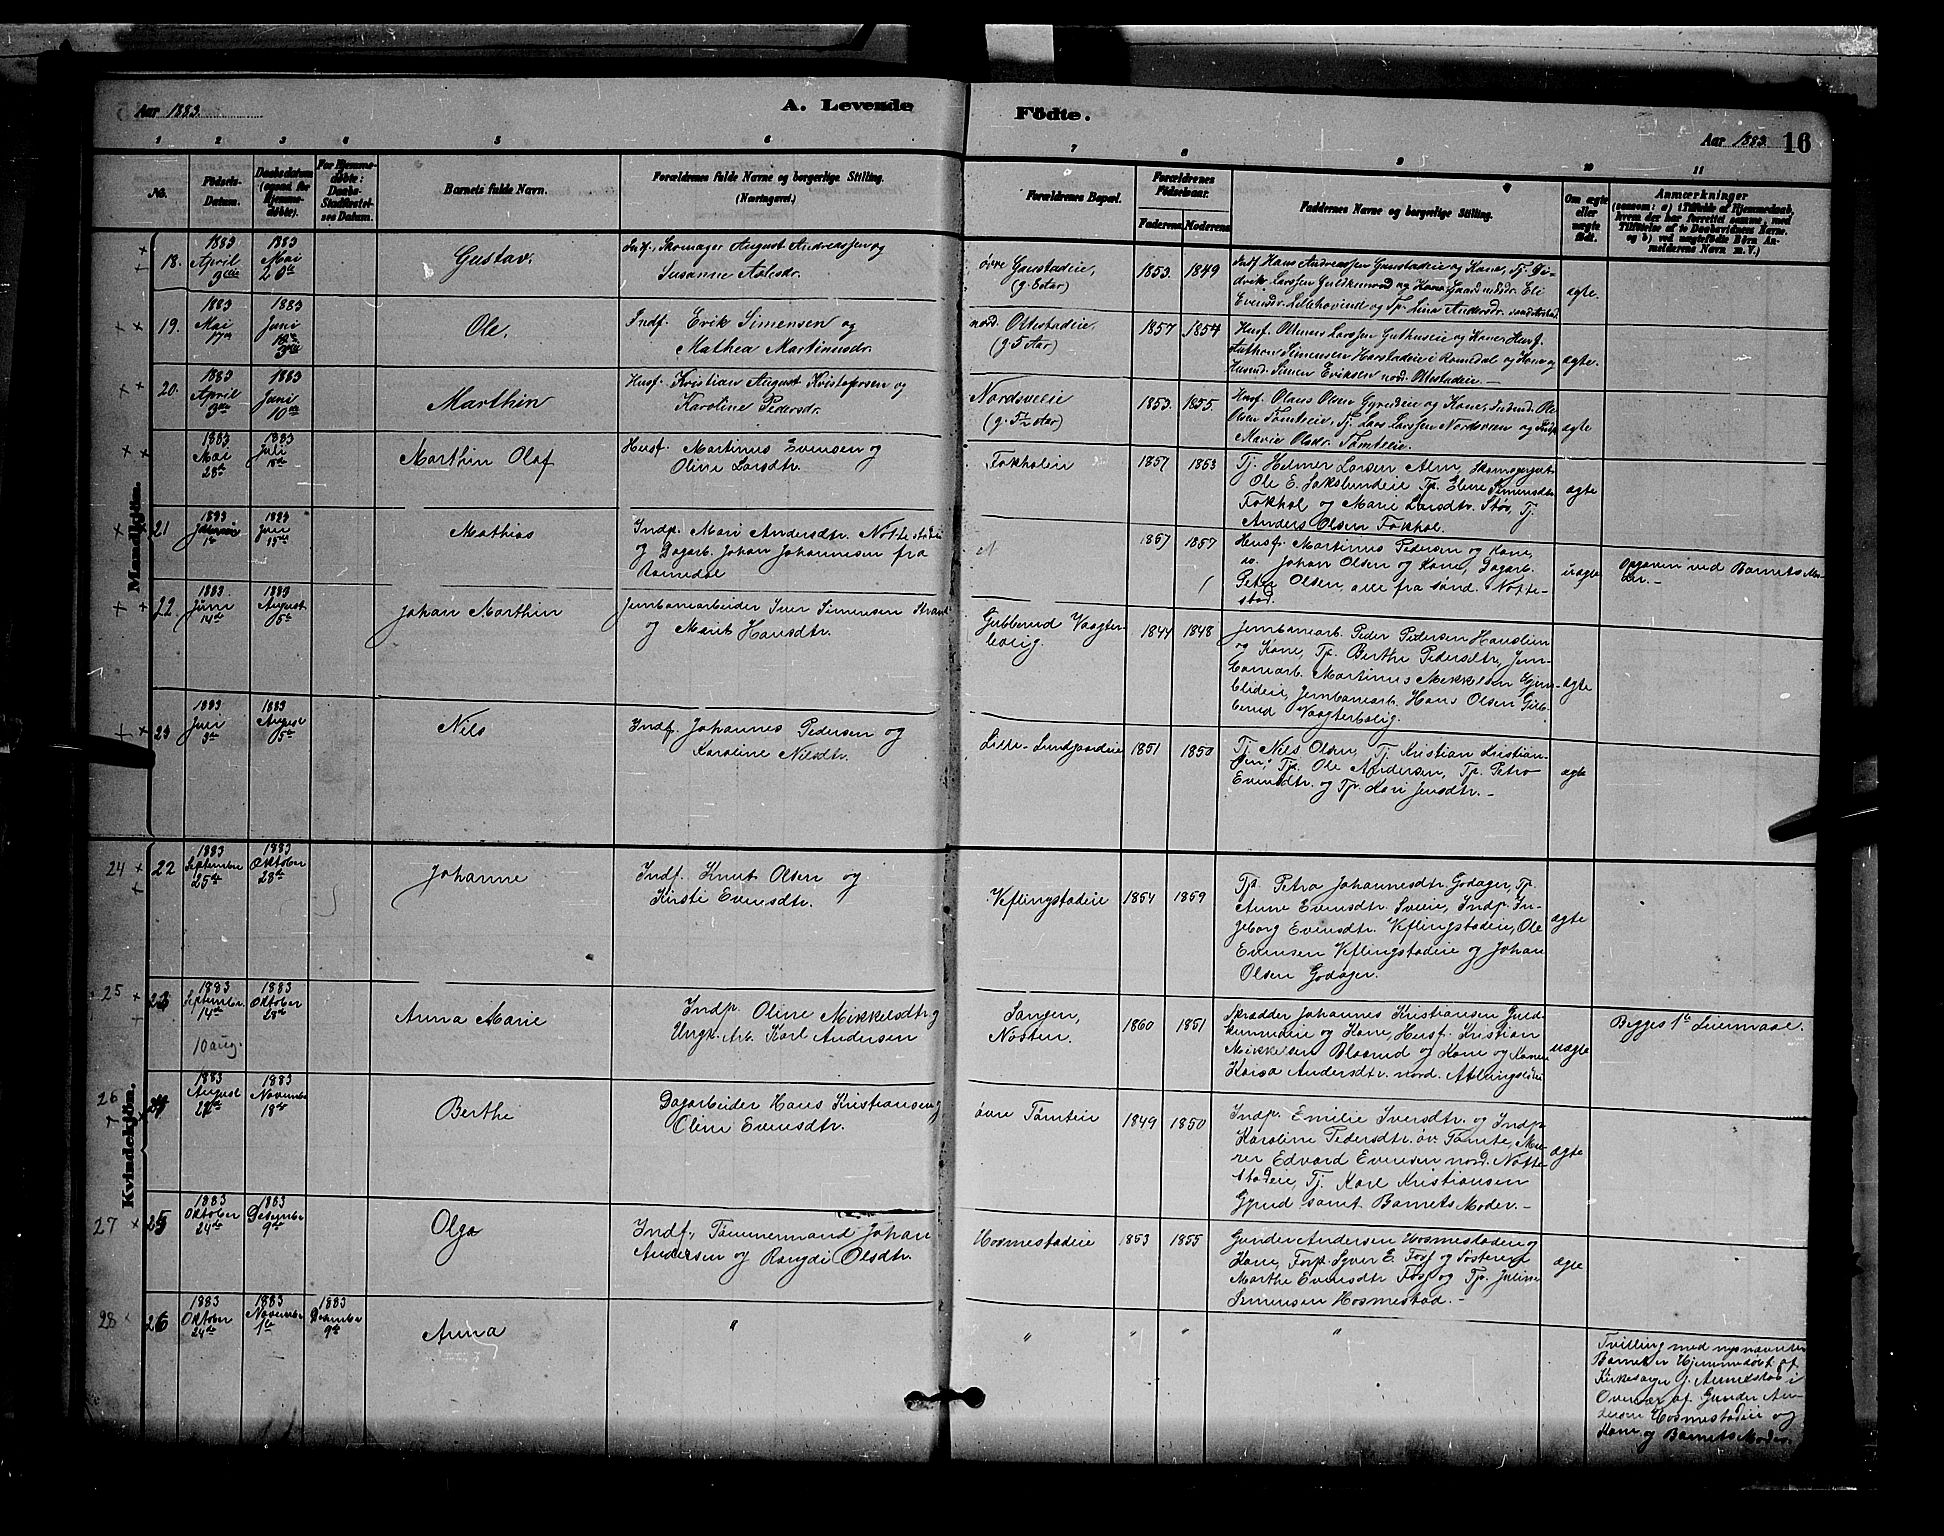 Aar 1883.
A. Levende
Födte.
Aar 1883. 16
1 2 3 4 5 6 7 8 9 10 11
No.
Födsels-Datum.
Daabsdatum (ogsaa for Hjemmedöbte).
For Hjemmedöbte: Daabs-Stadfæstelses Datum.
Barnets fulde Navn.
Forældrenes fulde Navne og borgerlige Stilling. (Næringsvei.)
Forældrenes Bopæl.
Forældrenes Födselsaar.
Faderens Moderens
Faddernes Navne og borgerlige Stilling.
Om ægte eller uægte födt.
Anmærkninger
(saasom: a) i Tilfælde af Hjemmedaab, hvem der har forrettet samme, med Tilföielse af to Daabsvidners Navne. og b) ved uægtefödte Börn Anmelderens Navn m. V.)
Mandkjön.
18. 1883 April 1883 Mai 20de
Gustav.
Indf., Skomager August Andreassen og
Susanne Axlesdr.
övre Gaustadeie,
(g. 8 Aar)
1853. 1849
Indf Hans Andreassen Gaustadeie og Kone, Tj. Di-
drik Larssen Guldkunrud og
Evensdr. Lillehovind og Tp. Lina Andersdr.
ægte.
19. 1883 Mai 17de 1883 Juni
Ole,
Indf. Erik Simensen og
Mathea Martinusdr.
nord. Ottestadeie
(g. 5 Aar)
1857 1854
Husf. Ottinus Larssen Guthuseie og Kone, Husf.
Anthon Simensen Harstadeie i Romedal og Kone og
Husmd. Simen Eriksen nord. Ottestadeie. —
ægte.
20. 1883 April 1883 Juni 10de
Marthin
Husf. Kristian August Kristofersen og
Karoline Pedersdr.
Nordsveeie
(g. 5½ Aar)
1853. 1855.
Husf. Olaus Olsen Gyrudeie og Kone, Ole
Olsen Tomteie, Tj. Lars Larssen Nordsveen og Indp
Marie Olsdr. Tomteeie.
ægte
1883 Mai 28de 1883 Juli
Marthin Olaf
Husf. Martinus Evensen og
Oline Larsdtr.
Fokholeie
1857 1853
Tj. Helmer Larsen Alm, Skomagergut
Ole E. Sakslundeie Tp. Eline Simensdtr
Fokhol og Marie Larsdtr. Stor, Tj.
Anders Olsen Fokhol.
ægte
21 1883 1883 Juli 15de
Mathias
Indp. Mari Andersdtr. Nottestadeie
og Dagarb. Johan Johannesen fra
Romedal
1857 1857
Husf. Martinus Pedersen og Kone,
do. Johan Olsen og Kone, Dagarb.
Petra Olsen, alle fra sönd. Notte-
stad.
uægte
Opgaven ved Barnets Mo-
der. —
22. 1883 Juni 14de 1883 August 5te
Johan Marthin
Jernbanearbeider Iver Simensen Strand
og Marit Hansdtr.
Gubberud Vogter-
bolig.
1844 1848
Jernbanearb. Peder Pedersen Hauslien
og Kone, Tp. Berthe Pedersdtr, Jern-
banearb. Martinus Mikkelsen Gjem-
blideie, Jernbanearb. Hans Olsen Gub-
berud Vaagterbolig.
ægte
23 1883 Juli 1883 August 5te
Nils
Indf. Johannes Pedersen og
Karoline Nilsdtr.
Lille-Lundgaardeie
1851 1850
Tj. Nils Olsen, Tj. Kristian Kristian-
sen, Tp. Ole Andersen, Tp. Petra
Evensdtr. og Tp. Kari Jensdtr. —
ægte
Kvindekjön.
24 22 1883 September 25de 1883 Oktober 28de
Johanne
Indf. Knut Olsen og
Kirsti Evensdtr.
Veflingstadeie
1854 1859
Tp. Petra Johannesdtr. Godager, Tp.
Anne Evensdtr. Sveeie, Indp. In-
geborg Evensdtr. Veflingstadeie, Ole
Evensen Veflingstadeie og Johan
Olsen Godager.
ægte
25 23 1883 September 14de 1883 Oktober 28de
10 aug.
Anna Marie
Indp. Oline Mikkelsdtr og
Ungk. Arb. Karl Andersen
Sangen,
Nosten.
1860 1851
Skrædder Johannes Kristiansen Guld-
kunrudeie og Kone, Husf. Kristian
Mikkelsen Blaarud og Kone og Konen
Karen Andersdtr. nord.
uægte
Begges 1te Leiermaal.
26 24 1883 August 1883 November 18de
Berthe
Dagarbeider Hans Kristiansen og
Oline Evensdtr.
övre Tomteie
1849 1850
Indp. Emilie Iversdtr. og Indp.
Karoline Pedersdtr. öv. Tomte, Mu-
rer Edvard Evensen nord. Notte-
stadeie, Tj. Karl Kristiansen
Gyrud samt Barnets Moder. —
ægte
27 25 1883 Oktober 24de 1883 December 9de
Olga
Indf., Tømmermand Johan
Andersen og Rangdi Olsdtr.
Hosmestadeie
1853 1855
Gunder Andersen Hosmestadeie og
Kone, Forp. Syver E. Foss og Søsteren
Marthe Evensdtr Foss og Tp. Juline
Simensen Hosmestad. —
ægte
28 26 1883 Oktober 24de 1883 November 1ste 1883 December 9de
Anna
" " " " "
Tvilling med nysnævnte.
Barnet er hjemmedøbt af
Kirkesanger J. i
Overvær af Gunder An-
dersen Hosmestadeie og
Kone og Barnets Moder.